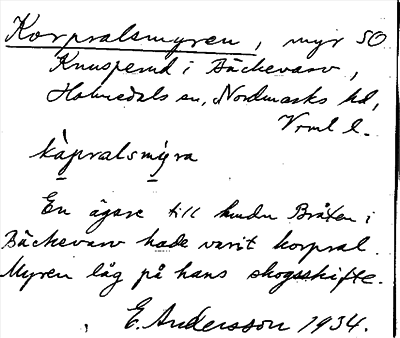 Korpralsmyren, myr SO
Knuserud i Bäckevarv,
Holmedals sn, Nordmarks hd,
Vrml l.
kàpralsmýra
En ägare till hmdn Bråten i
Bäckevarv hade varit korpral.
Myren låg på hans skogsskifte.
E. Andersson 1934.